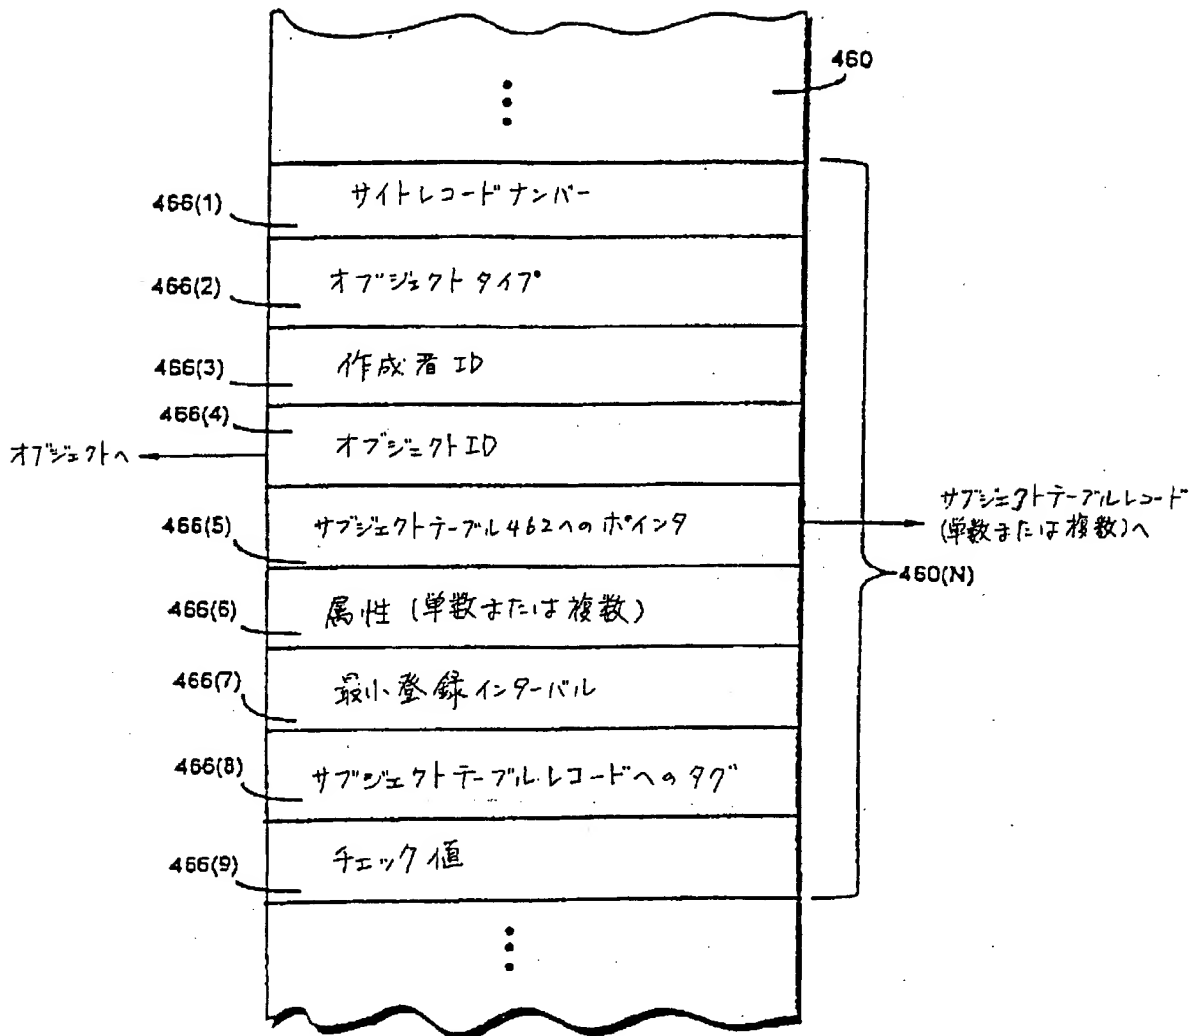 460
466(1)
サイトレコードナンバー
466(2)
オブジェクトタイプ
466(3)
作成者 ID
466(4)
オブジェクトID
オブジェクトへ
466(5)
サブジェクトテーブル462へのポインタ
サブジェクトテーブルレコード
(単数または複数)へ
460(N)
466(6)
属性 (単数または複数)
466(7)
最小登録インターバル
466(8)
サブジェクトテーブルレコードへのタグ
466(9)
チェック値